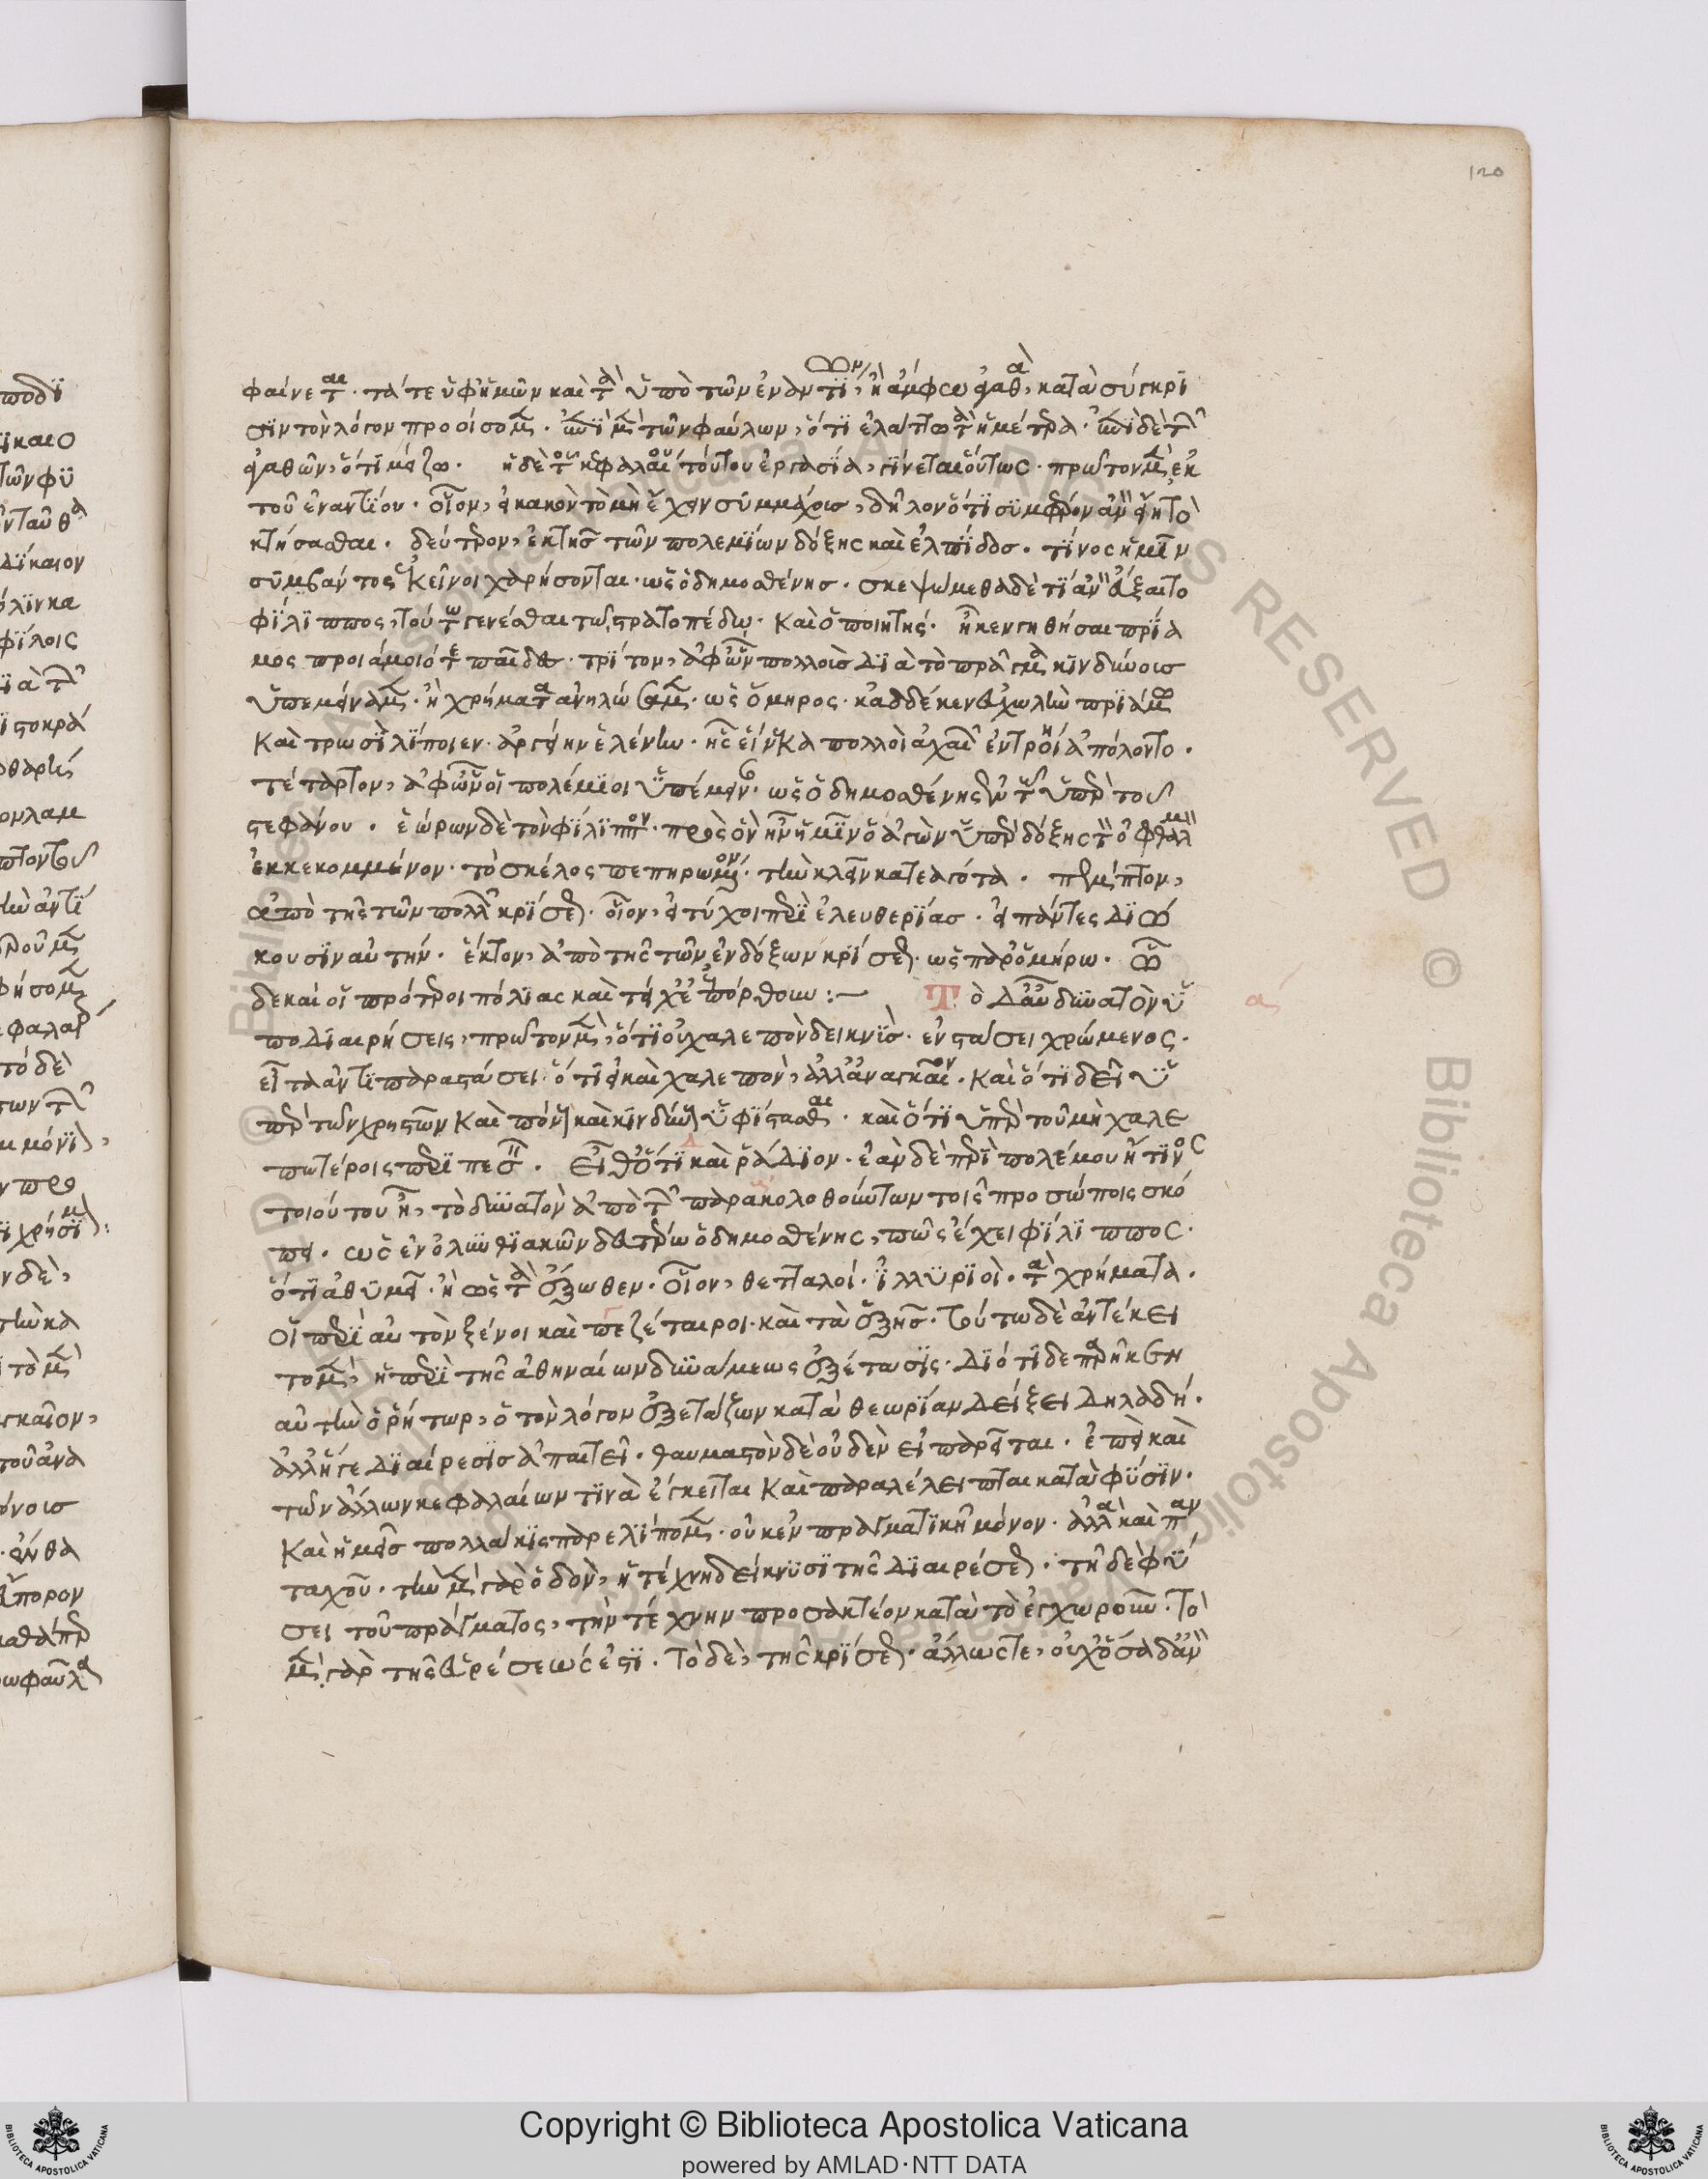 120
φαίνεται· τά τε ὑφ' ἡμῶν καὶ τὰ ὑπὸ τῶν ἐναντί, ἢ ἄμφω ἀγαθὰ, κατὰ σύγκρι
σιν τὸν λόγον προοίσομεν· ἐπὶ μὲν τῶν φαύλων, ὅτι ἐλάττω τὰ ἡμέτερα· ἐπὶ δὲ τῶν
ἀγαθῶν, ὅτι μείζω. ἡ δὲ τοῦ κεφαλαίου τούτου ἐργασία, γίνεται οὕτως· πρῶτον μὲν, ἐκ
τοῦ ἐναντίου· οἷον, εἰ κακὸν τὸ μὴ ἔχειν συμμάχους, δῆλον ὅτι συμφέρον ἂν εἴη τὸ
κτήσασθαι. δεύτερον, ἐκ τῆς τῶν πολεμίων δόξης καὶ ἐλπίδος. τίνος ἡμῖν
συμβάντος ἐκεῖνοι χαρήσονται· ὡς ὁ δημοσθένης· σκεψώμεθα δὲ τί ἂν εὔξαιτο
φίλιππος, τούτω γενέσθαι τῶ στρατοπέδω· καὶ ὁ ποιητής· ἦ κεν γηθήσαι πρία
μος πριάμοιό τε παῖδες· τρίτον, ἀφ' ὧν πολλοὺς διὰ τὸ πρᾶγμα κινδύνους
ὑπεμείναμεν· ἢ χρήματα ἀνηλώσαμεν· ὡς ὅμηρος· κὰδ δέ κεν εὐχωλὴν πριάμω
καὶ τρωσὶ λίποιεν· ἀργείην ἑλένην· ἧς εἵνεκα πολλοὶ ἀχαιῶν ἐν τροίη ἀπόλοντο.
τέταρτον, ἀφ' ὧν οἱ πολέμιοι ὑπέμειναν· ὡς ὁ δημοσθένης ἐν τῶ ὑπὲρ τοῦ
στεφάνου. ἑώρων δὲ τὸν φίλιππον· πρὸς ὃν ἦν ἡμῖν ὁ ἀγὼν ὑπὲρ δόξης τὸν ὀφθαλμὸν
ἐκκεκομμένον· τὸ σκέλος πεπηρωμένον· τὴν κλεῖν κατεαγότα. πέμπτον,
ἀπὸ τῆς τῶν πολλῶν κρίσεως· οἷον, εἰ τύχοι περὶ ἐλευθερίας· εἰ πάντες διώ
κουσιν αὐτήν. ἕκτον, ἀπὸ τῆς τῶν ἐνδόξων κρίσεως· ὡς παρ' ὁμήρω· ὧ
δε καὶ οἱ πρότεροι πόλιας καὶ τείχε' ἐπόρθουν :— Τὸ δ' αὖ δυνατὸν ὑ
α
ποδιαιρήσεις, πρῶτον μὲν, ὅτι οὐ χαλεπὸν δεικνύς· ἐνστάσει χρώμενος·
εἶτα ἀντιπαραστάσει· ὅτι εἰ καὶ χαλεπὸν, ἀλλ' ἀναγκαῖον· καὶ ὅτι δεῖ ὑ
πὲρ τῶν χρηστῶν καὶ πόνους καὶ κινδύνους ὑφίστασθαι· καὶ ὅτι ὑπὲρ τοῦ μὴ χαλε
πωτέροις περιπεσεῖν. Εἶθ' ὅτι καὶ ῥάδιον· ἐὰν δὲ περὶ πολέμου ἤ τινος
τοιούτου ἦ, τὸ δυνατὸν ἀπὸ τῶν παρακολουθούντων τοῖς προσώποις σκό
πει. ὡς ἐν ὀλυνθιακῶν δευτέρω ὁ δημοσθένης, πῶς ἔχει φίλιππος·
ὅτι ἀθυμεῖ· ἢ ὡς τὰ ἔξωθεν· οἷον, θετταλοί· ἰλλυριοὶ· τὰ χρήματα.
οἱ περὶ αὐτὸν ξένοι καὶ πεζέταιροι· καὶ τὰ ἑξῆς. τούτω δὲ ἀντέκει
το μὲν, ἡ περὶ τῆς ἀθηναίων δυνάμεως ἐξέτασις· διότι δὲ παρῆκεν
αὐτὴν ὁ ῥήτωρ, ὁ τὸν λόγον ἐξετάζων κατὰ θεωρίαν δείξει δηλαδή·
ἀλλ' ἥ γε διαίρεσις ἀπαιτεῖ· θαυμαστὸν δὲ οὐδὲν εἰ παρεῖται· ἐπεὶ καὶ
τῶν ἄλλων κεφαλαίων τινὰ ἔγκειται καὶ παραλέλειπται κατὰ φύσιν·
καὶ ἡμεῖς πολλάκις παρελίπομεν· οὐκ ἐν πραγματικῆ μόνον· ἀλλὰ καὶ παν
ταχοῦ· τὴν μὲν γὰρ ὁδὸν, ἡ τέχνη δείκνυσι τῆς διαιρέσεως· τῆ δὲ φύ
σει τοῦ πράγματος, τὴν τέχνην προσακτέον κατὰ τὸ ἐγχωροῦν· τὸ
μὲν γὰρ τῆς εὑρέσεως ἐστί. τὸ δὲ, τῆς κρίσεως· ἄλλως τε, οὐχ ὅσα δ' ἂν
Copyright © Biblioteca Apostolica Vaticana
powered by AMLAD·NTT DATA